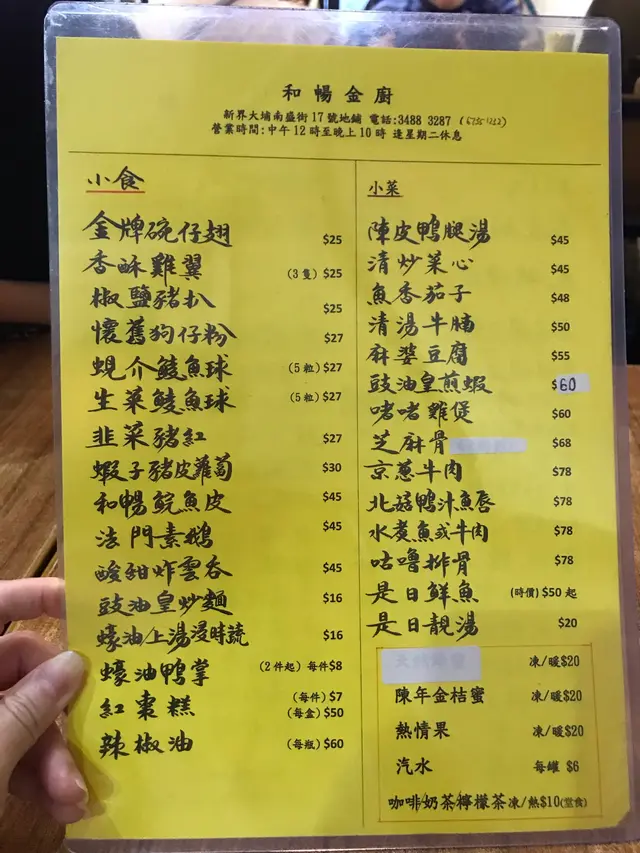 和暢金廚
新界大埔南盛街17號地鋪 電話:3488 3287
營業時間:中午12時至晚上10時 逢星期二休息
小食
金牌碗仔翅 $25
香酥雞翼 (3隻) $25
椒鹽豬扒 $25
懷舊狗仔粉 $27
蜆介鯪魚球 (5粒) $27
生菜鯪魚球 (5粒) $27
韭菜豬紅 $27
蝦子豬皮蘿蔔 $30
和暢鯇魚皮 $45
法門素鵝 $45
酸甜炸雲吞 $45
豉油皇炒麵 $16
蠔油/上湯浸時蔬 $16
蠔油鴨掌 (2件起) 每件$8
紅棗糕 (每件) $7
(每盒) $50
辣椒油 (每瓶) $60
小菜
陳皮鴨腿湯 $45
清炒菜心 $45
魚香茄子 $48
清湯牛腩 $50
麻婆豆腐 $55
豉油皇煎蝦 $60
啫啫雞煲 $60
芝麻骨 $68
京蔥牛肉 $78
北菇鴨汁魚唇 $78
水煮魚或牛肉 $78
咕嚕排骨 $78
是日鮮魚 (時價) $50起
是日靚湯 $20
凍/暖$20
陳年金桔蜜 凍/暖$20
熱情果 凍/暖$20
汽水 每罐 $6
咖啡/奶茶/檸檬茶 凍/熱$10(堂食)